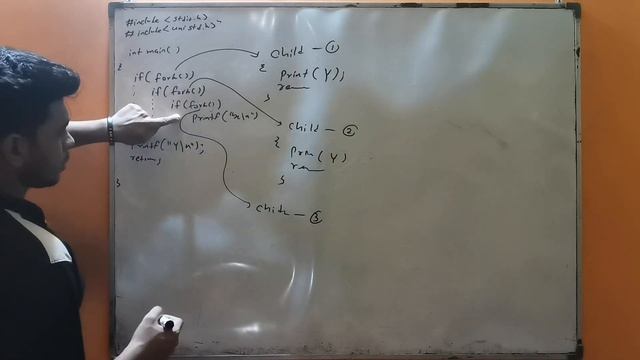 #include <stdio.h>
#include <unistd.h>
int main()
{
if(fork())
if(fork())
if(fork())
printf("x\n")
printf("Y\n");
return;
}
child - ①
{
print(Y);
}
child - ②
{
Prin(Y)
}
child - ③